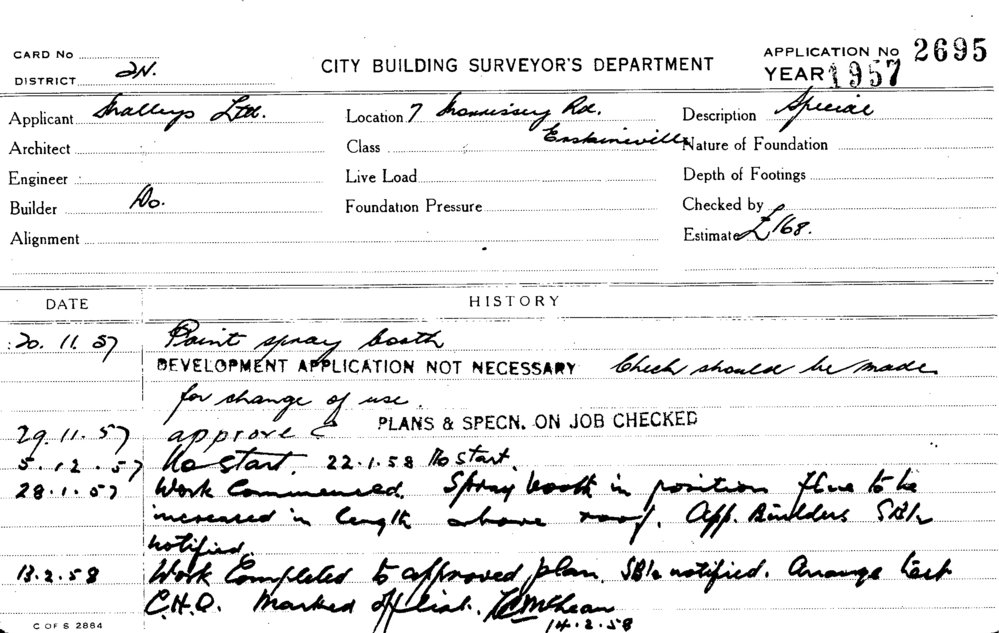 CARD No
DISTRICT 2N.
CITY BUILDING SURVEYOR'S DEPARTMENT
APPLICATION No 2695
YEAR 1957
Applicant Malleys Ltd.
Location 7 Morrissey Rd. Erskineville
Description Special
Architect
Class
Nature of Foundation
Engineer
Live Load
Depth of Footings
Builder Do.
Foundation Pressure
Checked by
Alignment
Estimate £168.
DATE
HISTORY
20.11.57 Paint spray booth
DEVELOPMENT APPLICATION NOT NECESSARY Check should be made
for change of use.
PLANS & SPECN. ON JOB CHECKED
29.11.57 approved
5.12.57 No start. 22.1.58 No start.
28.1.57 Work Commenced. Spray booth in position flue to be
increased in length above roof. App. Builders
notified.
13.2.58 Work Completed to approved plan. notified. Arrange test
C.H.O. Marked off list.
14.2.58
C OF S 2884